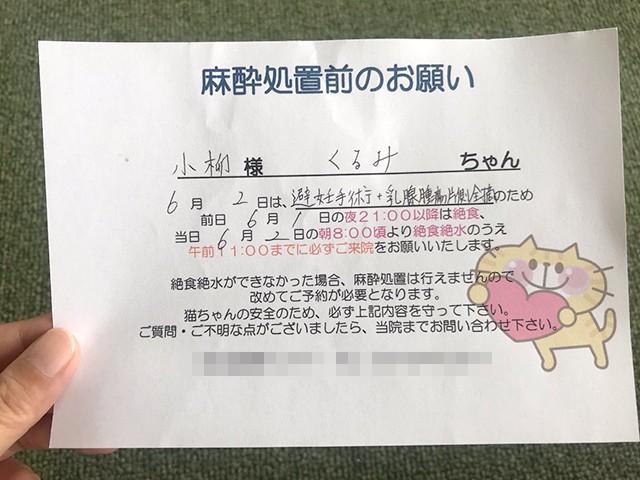 麻酔処置前のお願い
小柳様 くるみ ちゃん
6月 2日は、避妊手術+乳腺腫瘍片側全摘のため
前日 6月 1日の夜21:00以降は絶食、
当日 6月 2日の朝8:00頃より絶食絶水のうえ
午前11:00までに必ずご来院をお願いいたします。
絶食絶水ができなかった場合、麻酔処置は行えませんので
改めてご予約が必要となります。
猫ちゃんの安全のため、必ず上記内容を守って下さい。
ご質問・ご不明な点がございましたら、当院までお問い合わせ下さい。